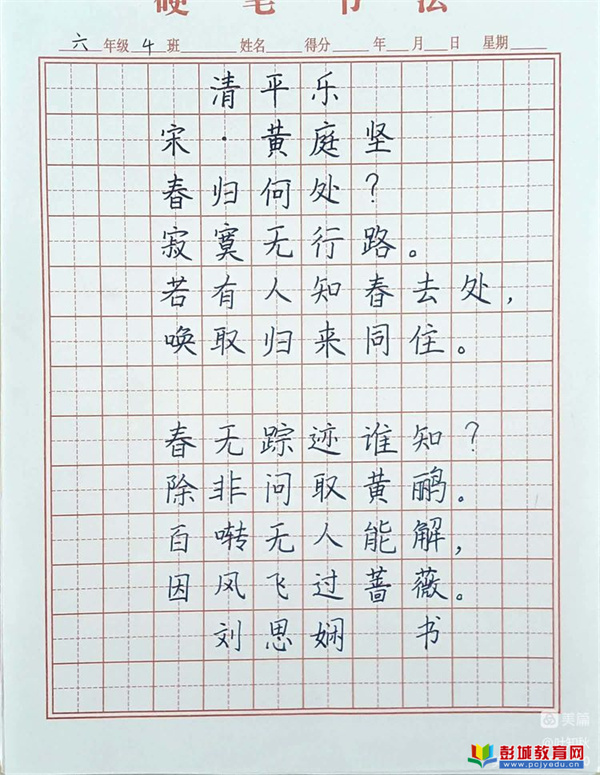 硬笔书法
六年级 4班 姓名 得分 年 月 日 星期
清平乐
宋·黄庭坚
春归何处？
寂寞无行路。
若有人知春去处，
唤取归来同住。
春无踪迹谁知？
除非问取黄鹂。
百啭无人能解，
因风飞过蔷薇。
刘思娴 书
美篇
彭城教育网
www.pcjyedu.cn